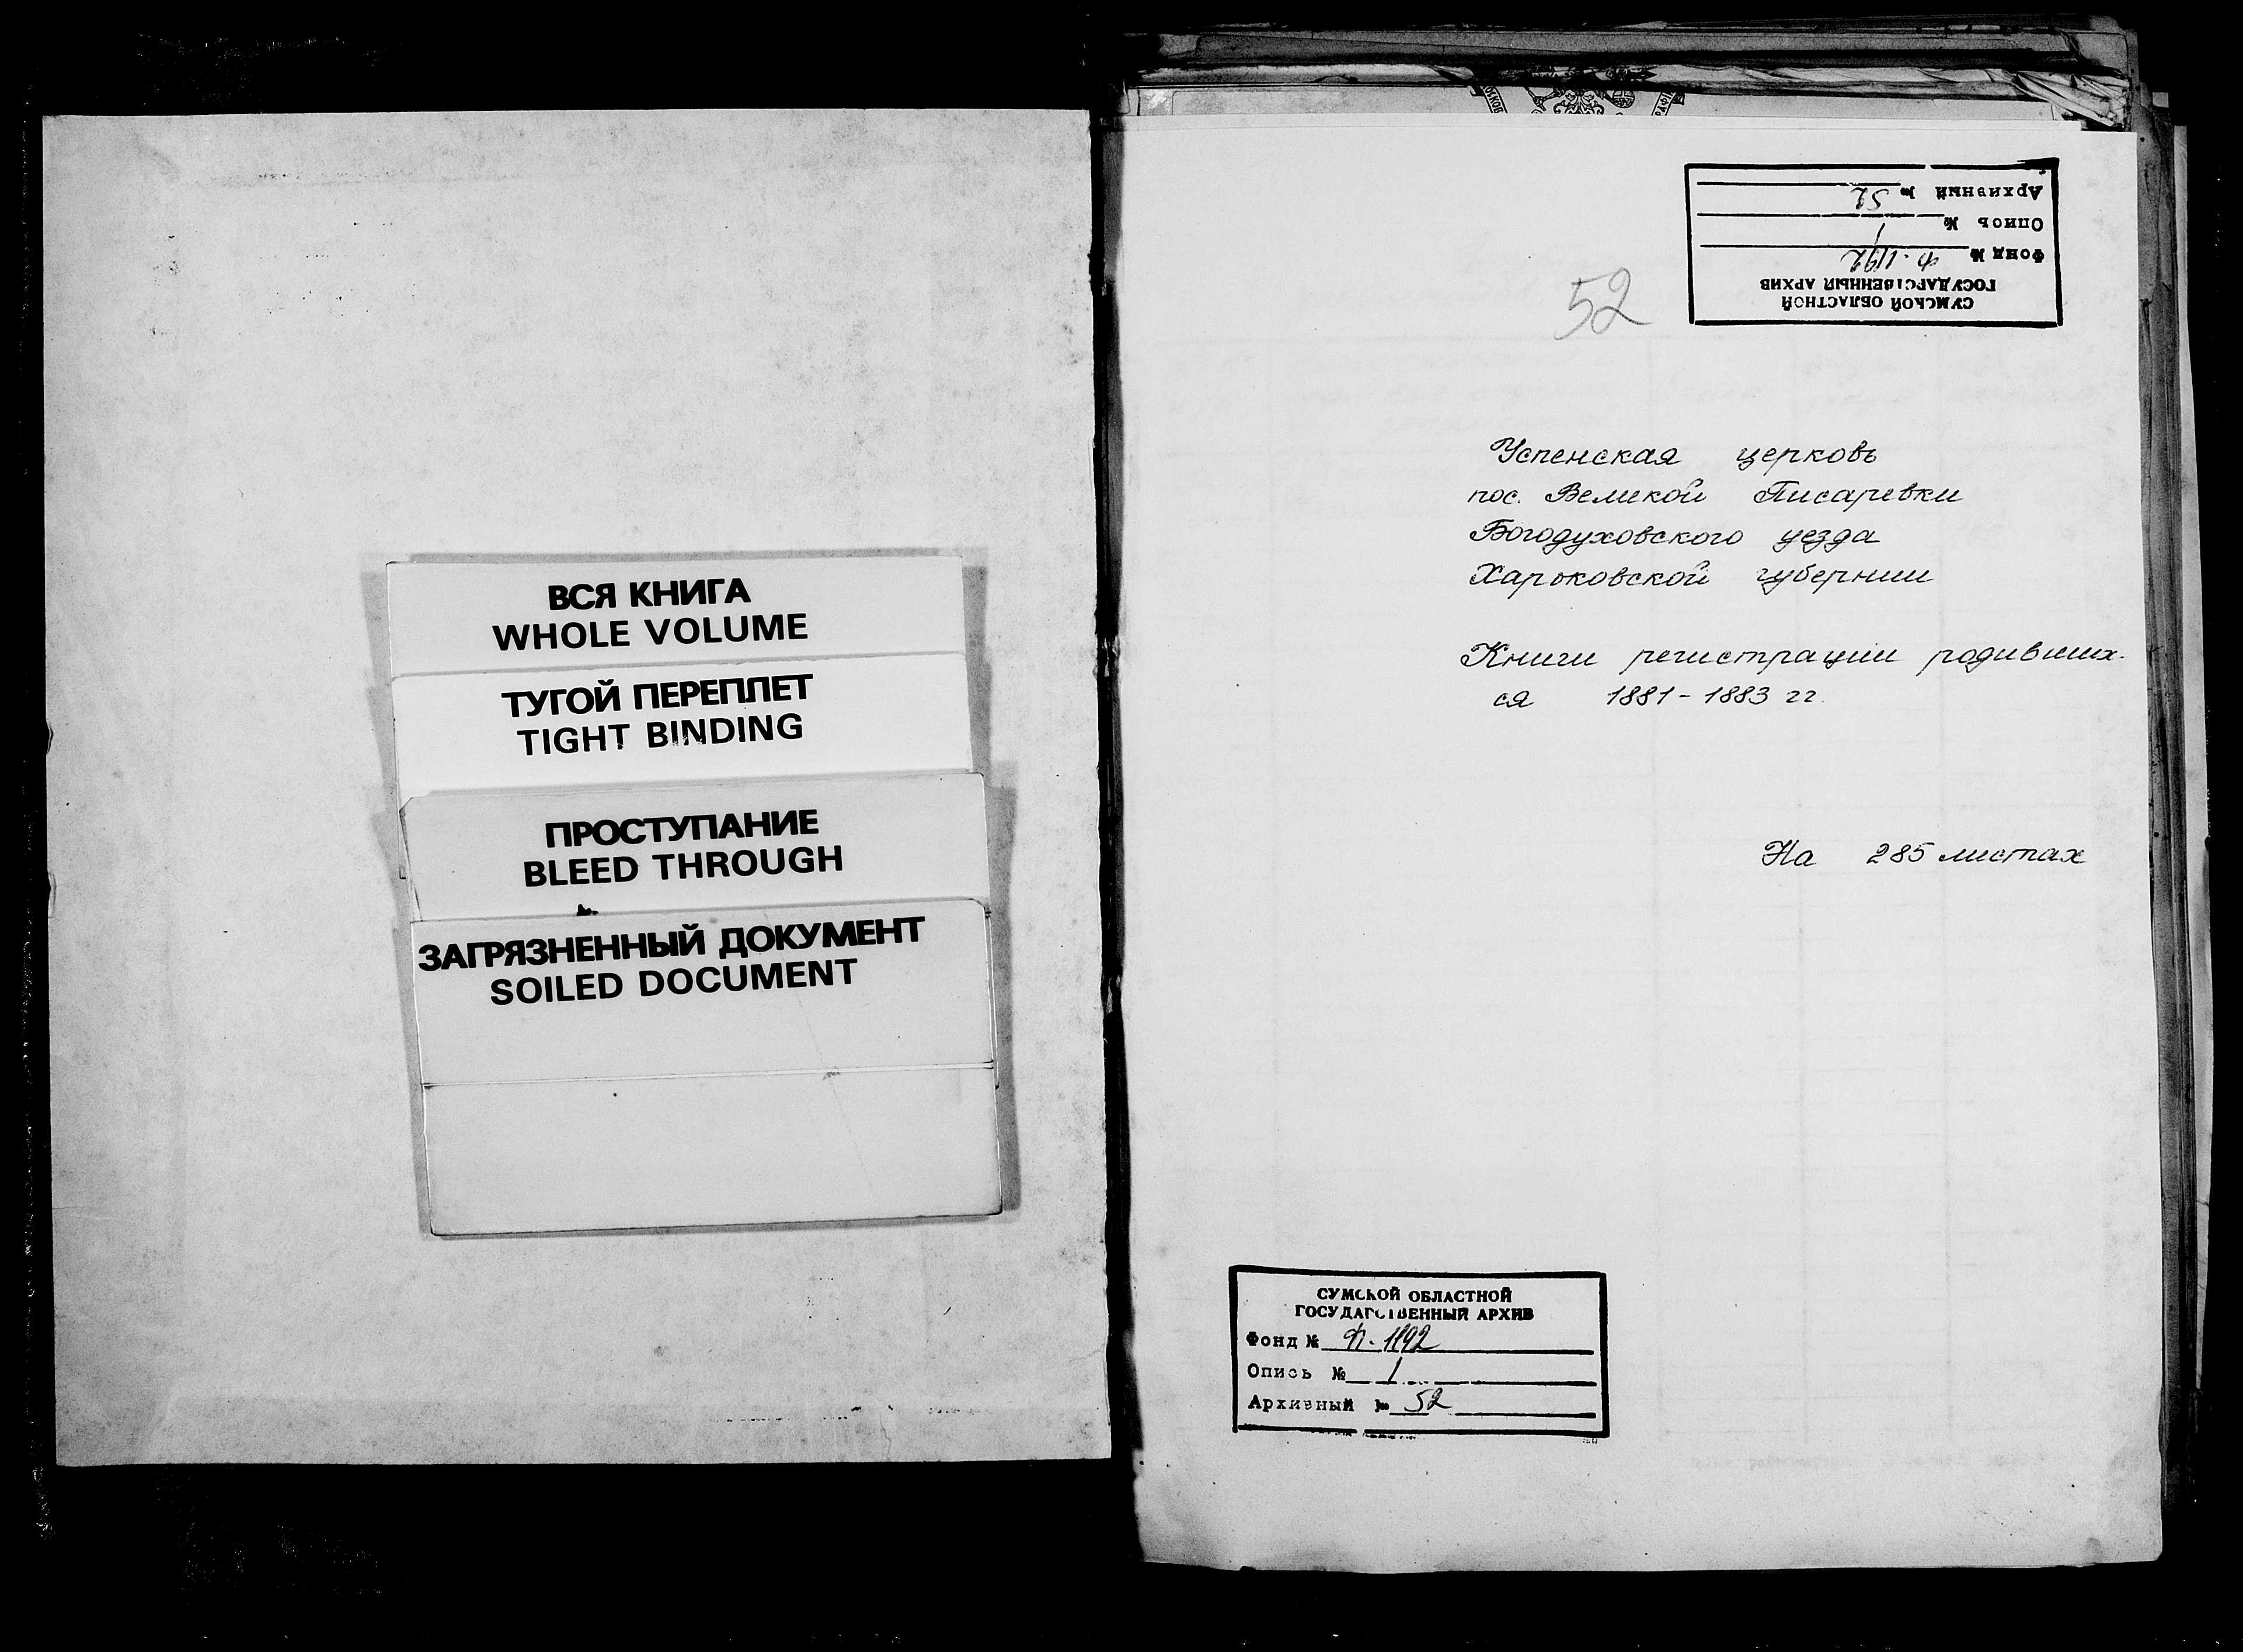 ВСЯ КНИГА
WHOLE VOLUME
ТУГОЙ ПЕРЕПЛЕТ
TIGHT BINDING
ПРОСТУПАНИЕ
BLEED THROUGH
ЗАГРЯЗНЕННЫЙ ДОКУМЕНТ
SOILED DOCUMENT
СУМСКОЙ ОБЛАСТНОЙ
ГОСУДАРСТВЕННЫЙ АРХИВ
Фонд № Ф. 1192
Опись № 1
Архивный № 52
52
Успенская церковь
пос. Великой Писаревки
Богодуховского уезда
Харьковской губернии
Книги регистрации родивших-
ся 1881-1883 гг.
На 285 листах
СУМСКОЙ ОБЛАСТНОЙ
ГОСУДАРСТВЕННЫЙ АРХИВ
Фонд № Ф. 1192
Опись № 1
Архивный № 52